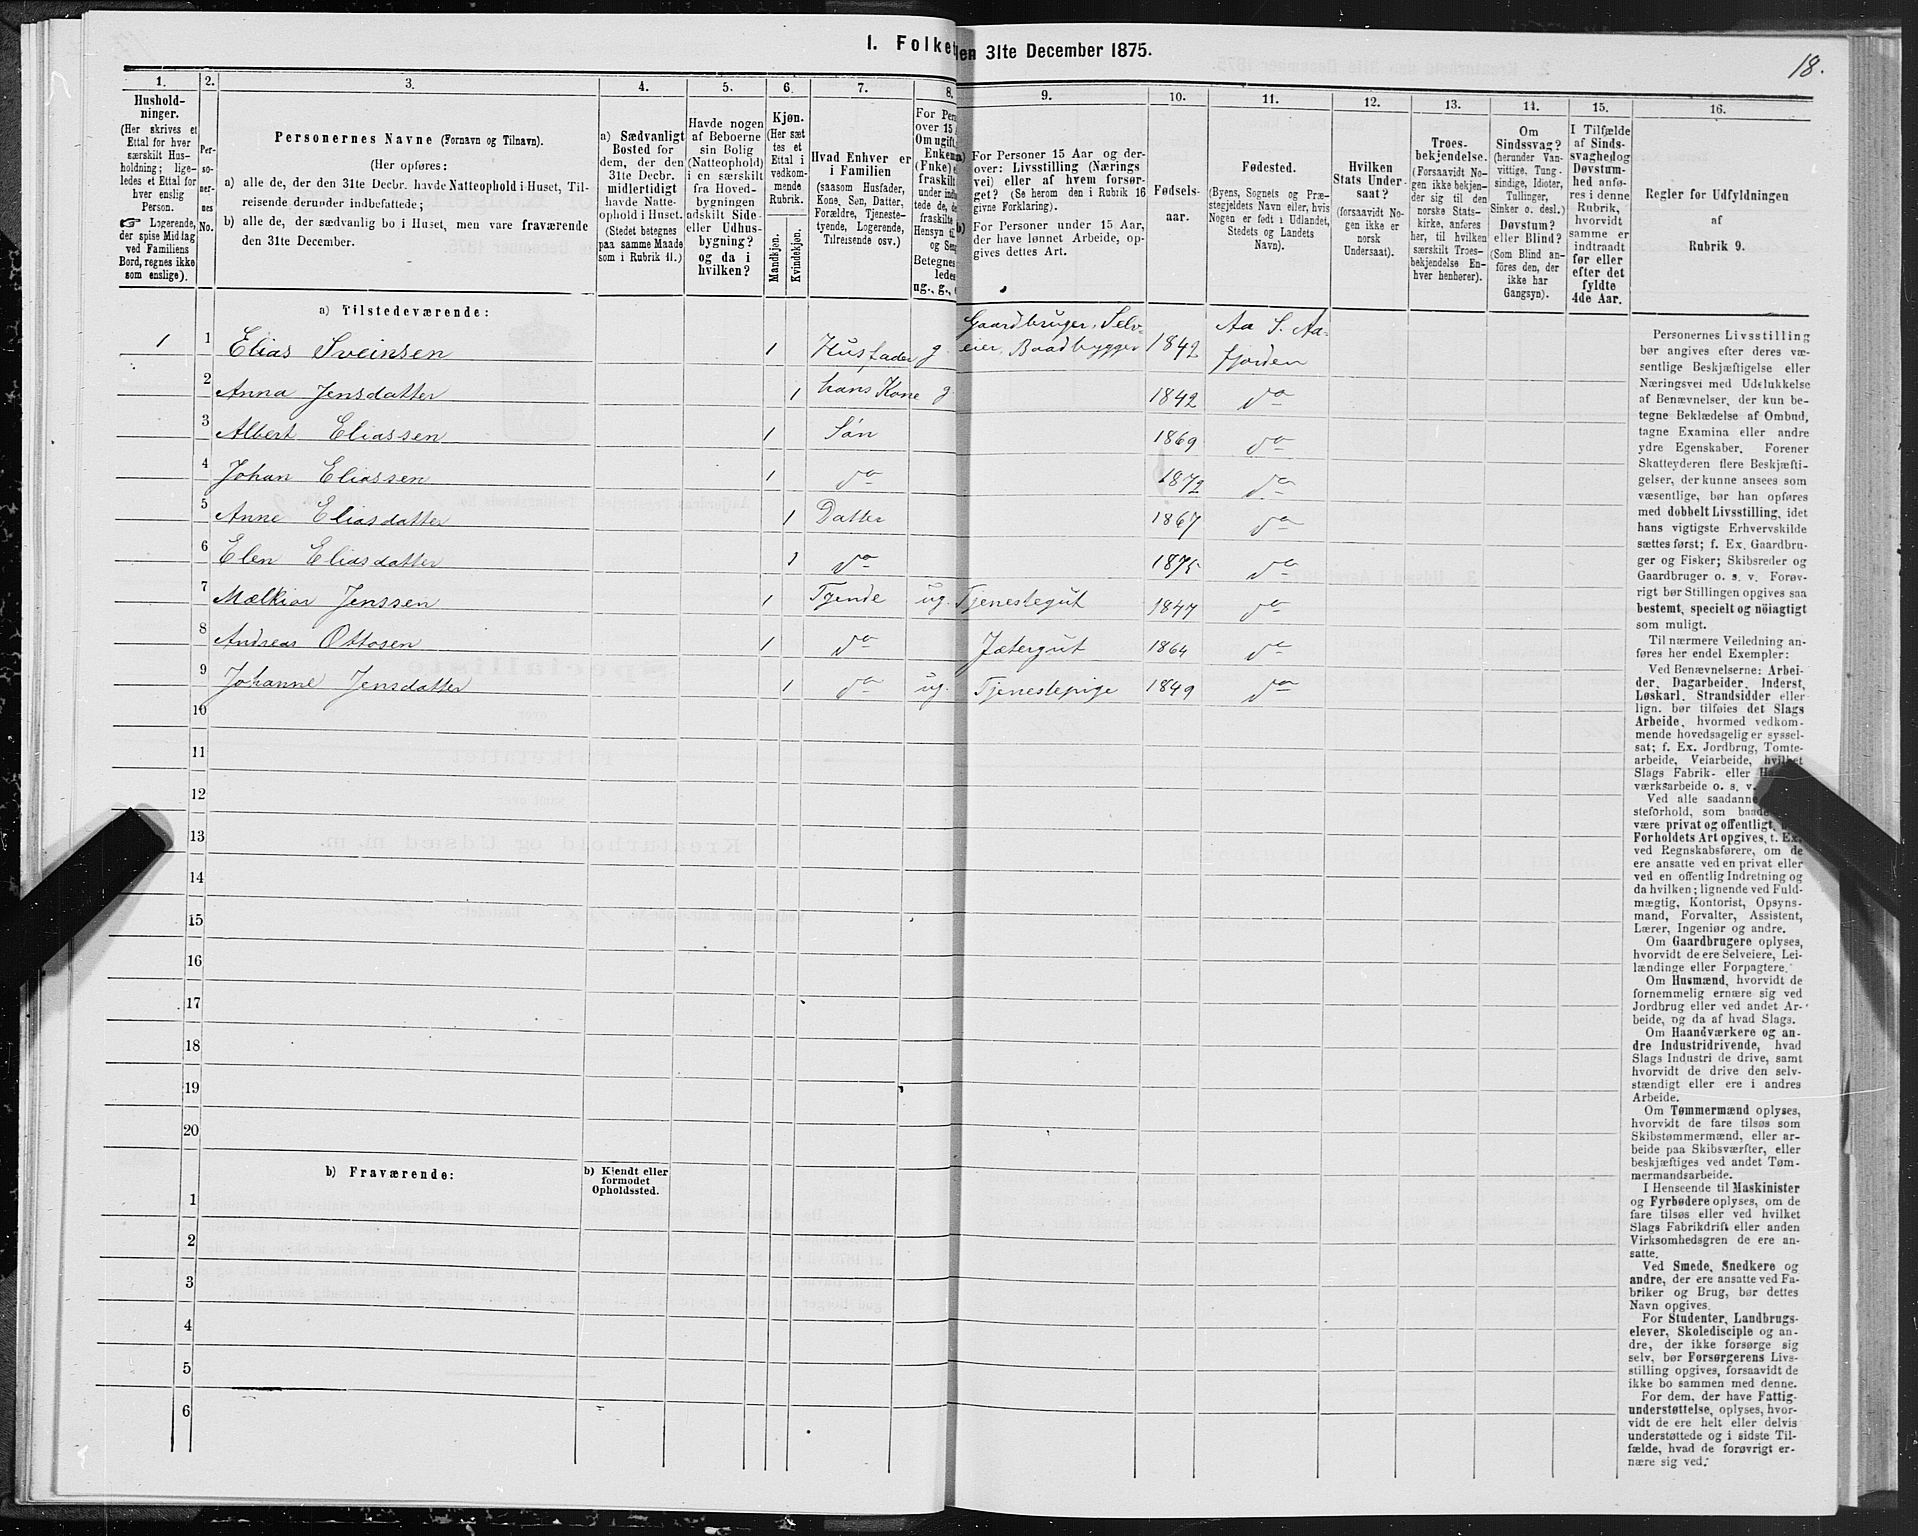 I. Folket
en 31te December 1875.
18.
1.
2.
3.
4.
5.
6.
7.
8.
9.
10.
11.
12.
13.
14.
15.
16.
Hushold-
ninger.
(Her skrives et
Ettal for hver
særskilt Hus-
holdning; lige-
ledes et Ettal for
hver enslig
Person.
☞ Logerende,
der spise Middag
ved Familiens
Bord, regnes ikke
som enslige).
Per-
so-
ner-
nes
No.
Personernes Navne (Fornavn og Tilnavn).
(Her opføres:
a) alle de, der den 31te Decbr. havde Natteophold i Huset, Til-
reisende derunder indbefattede;
b) alle de, der sædvanlig bo i Huset, men vare fraværende
den 31te December.
a) Sædvanligt
Bosted for
dem, der den
31te Decbr.
midlertidigt
havde Natte-
ophold i Huset.
(Stedet betegnes
paa samme Maade
som i Rubrik 11.)
Havde nogen
af Beboerne
sin Bolig
(Natteophold)
i en særskilt
fra Hoved-
bygningen
adskilt Side-
eller Udhus-
bygning?
og da i
hvilken?
Kjøn.
(Her sæt
tes et
Ettal i
vedkom-
mende
Rubrik.
Mandkjøn.
Kvindekjøn.
Hvad Enhver er
i Familien
(saasom Husfader,
Kone, Søn, Datter,
Forældre, Tjeneste-
tyende, Logerende,
Tilreisende osv.)
For Pers
over 15 A
Om ugift,
Enkem
(Fnke) e
fraskilt
under indb
tede de, de
fraskilte
Hensyn til
og Seng
Betegnes
ledes
ug., g., e
a)
For Personer 15 Aar og der-
over: Livsstilling (Nærings
vei) eller af hvem forsør-
get? (Se herom den i Rubrik 16
givne Forklaring).
b)
For Personer under 15 Aar,
der have lønnet Arbeide, op-
gives dettes Art.
Fødsels-
aar.
Fødested.
(Byens, Sognets og Præ-
stegjeldets Navn eller, hvis
Nogen er født i Udlandet,
Stedets og Landets
Navn).
Hvilken
Stats Under-
saat?
(forsaavidt No-
gen ikke er
norsk
Undersaat).
Troes-
bekjendelse.
(Forsaavidt No-
gen ikke bekjen-
der sig til den
norske Stats-
kirke, anføres
her, til hvilken
særskilt Troes-
bekjendelse En-
hver henhører).
Om
Sindssvag?
(herunder Van-
vittige, Tung-
sindige, Idioter,
Tullinger,
Sinker o. desl.)
Døvstum?
eller Blind?
(Som Blind an-
føres den, der
ikke har
Gangsyn).
I Tilfælde
af Sinds-
svaghed og
Døvstum-
hed anfø-
res i denne
Rubrik,
hvorvidt
samme er
indtraadt
før eller
efter det
fyldte
4de Aar.
Regler for Udfyldningen
af
Rubrik 9.
a) Tilstedeværende:
1 1 Elias Sveinsen 1 Husfader g. Gaardbruger, Selv-
eier, Baadbygger 1842 Aa S. Aa-
fjorden
2 Anna Jensdatter 1 hans Kone g. 1842 do
3 Albert Eliassen 1 Søn 1869 do
4 Johan Eliassen 1 do 1872 do
5 Anne Eliasdatter 1 Datter 1867 do
6 Elen Eliasdatter 1 do 1875 do
7 Mælkior Jenssen 1 Tyende ug. Tjenestegut 1847 do
8 Andreas Ottosen 1 do Jætergut 1864 do
9 Johanne Jensdatter 1 do ug. Tjenestepige 1849 do
10
11
12
13
14
15
16
17
18
19
20
b) Fraværende:
b) Kjendt eller
formodet
Opholdssted.
1
2
3
4
5
6
Personernes Livsstilling
bør angives efter deres væ-
sentlige Beskjæftigelse eller
Næringsvei med Udelukkelse
af Benævnelser, der kun be-
tegne Beklædelse af Ombud,
tagne Examina eller andre
ydre Egenskaber. Forener
Skatteyderen flere Beskjæfti-
gelser, der kunne ansees som
væsentlige, bør han opføres
med dobbelt Livsstilling, idet
hans vigtigste Erhvervskilde
sættes først; f. Ex. Gaardbru-
ger og Fisker; Skibsreder og
Gaardbruger o. s. v. Forøv-
rigt bør Stillingen opgives saa
bestemt, specielt og nöiagtigt
som muligt.
Til nærmere Veiledning an-
føres her endel Exempler:
Ved Benævnelserne: Arbei-
der, Dagarbeider, Inderst,
Løskarl, Strandsidder eller
lign. bør tilføies det Slags
Arbeide, hvormed vedkom-
mende hovedsagelig er syssel-
sat; f. Ex. Jordbrug, Tomte-
arbeide, Veiarbeide, hvilket
Slags Fabrik- eller
værksarbeide o. s. v.
Ved alle saadanne
steforhold, som baade
være privat og offentligt,
Forholdets Art opgives, t. Ex.
ved Regnskabsførere, om de
ere ansatte ved en privat eller
ved en offentlig Indretning og
da hvilken; lignende ved Fuld-
mægtig, Kontorist, Opsyns-
mand, Forvalter, Assistent,
Lærer, Ingeniør og andre.
Om Gaardbrugere oplyses,
hvorvidt de ere Selveiere, Lei-
lændinge eller Forpagtere.
Om Husmænd, hvorvidt de
fornemmelig ernære sig ved
Jordbrug eller ved andet Ar-
beide, og da af hvad Slags.
Om Haandværkere og an-
dre Industridrivende, hvad
Slags Industri de drive, samt
hvorvidt de drive den selv-
stændigt eller ere i andres
Arbeide.
Om Tømmermænd oplyses,
hvorvidt de fare tilsøs som
Skibstømmermænd, eller ar-
beide paa Skibsværfter, eller
beskjæftiges ved andet Tøm-
mermandsarbeide.
I Henseende til Maskinister
og Fyrbødere oplyses, om de
fare tilsøs eller ved hvilket
Slags Fabrikdrift eller anden
Virksomhedsgren de ere an-
satte.
Ved Smede, Snedkere og
andre, der ere ansatte ved Fa-
briker og Brug, bør dettes
Navn opgives.
For Studenter, Landbrugs-
elever, Skoledisciple og an-
dre, der ikke forsørge sig
selv, bør Forsørgerens Livs-
stilling opgives, forsaavidt de
ikke bo sammen med denne.
For dem, der have Fattig-
understøttelse, oplyses, hvor-
vidt de ere helt eller delvis
understøttede og i sidste Til-
fælde, hvad de forøvrigt er-
nære sig ved.